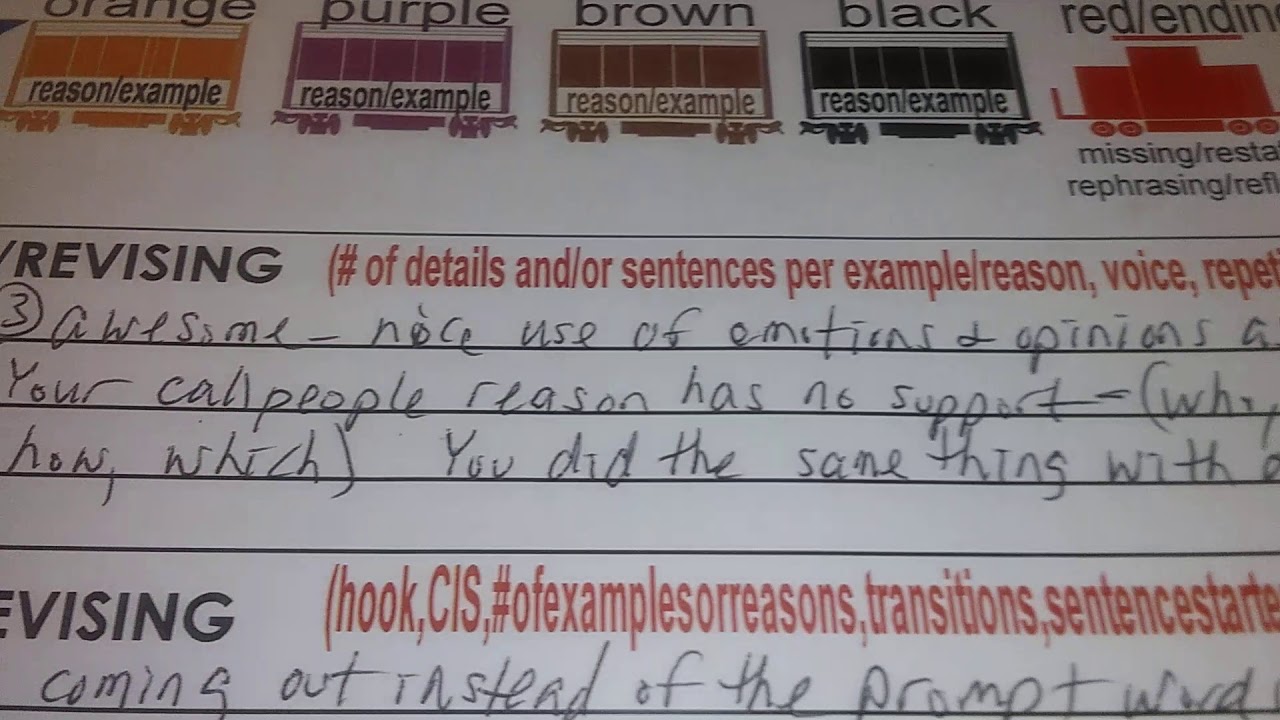 orange purple brown black red/ending
reason/example reason/example reason/example reason/example
missing/resta
rephrasing/refl
/REVISING (# of details and/or sentences per example/reason, voice, repeti
③ awesome - nice use of emotions & opinions a
Your call people reason has no support - (why,
how, which) You did the same thing with
EVISING (hook,CIS,#ofexamplesorreasons,transitions,sentencestarte
coming out instead of the prompt word